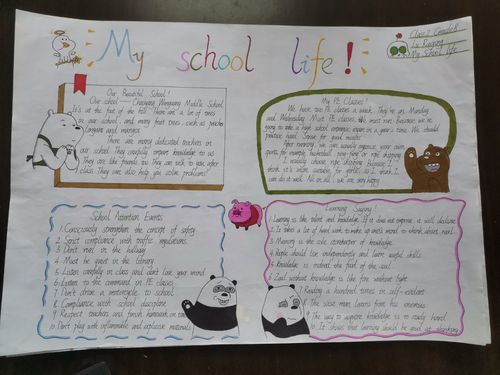 My school life!
Class 2 Grade 8
My School life
Our Beautiful School!
Our school — Chaoyang Middle School.
It's at the foot of the hill. There are a lot of trees
in our school, and many fruit trees, such as peaches
and mangos.
There are many dedicated teachers in
our school. They carefully impart knowledge to us.
They are like friends too. They can talk to you after
class. They can also help you solve problems!
My PE Classes!
We have two PE classes a week. They're on Monday
and Wednesday. Most PE classes, We must run. Because we're
going to take a high school entrance exam in a year's time. We should
practice hard. Strive for good results!
After running, we can usually organize your own
sports, for example, basketball, ping-pong or rope skipping.
I usually choose rope skipping. Because I
think it's more suitable for girls. So I think I
can do it well. All in all, we are very happy.
School Attention Events
1. Consciously strengthen the concept of safety
2. Strict compliance with traffic regulations
3. Don't run in the hallway
4. Must be quiet in the library
5. Listen carefully in class and don't let your mind
6. Listen to the command in PE classes
7. Don't drive a motorcycle to school
8. Compliance with school discipline
9. Respect teachers and finish homework on time
10. Don't play with inflammable and explosive materials
Learning Saying!
1. Learning is the talent and knowledge. If it does not improve, it will decline
2. It takes a lot of hard work to make up one's mind to think about math.
3. Memory is the sole of knowledge.
4. People should live independently and learn useful skills.
5. Knowledge is indeed the food of the soul.
6. Zeal without knowledge is like fire without light.
7. Reading a hundred times is self-evident
8. The wise man learns from his enemies
9. The way to acquire knowledge is to study hard
10. It shows that learning should be good at thinking